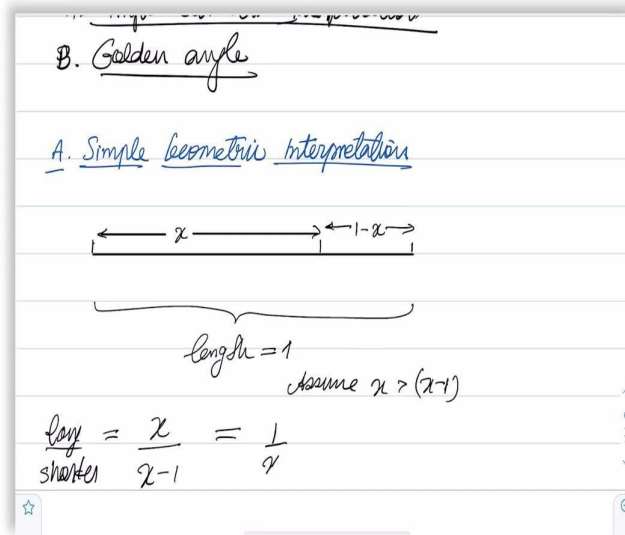 B. Golden angle
A. Simple Geometric Interpretation
x 1-x
length = 1
Assume x > (x-1)
long/shorter = x/(x-1) = 1/x